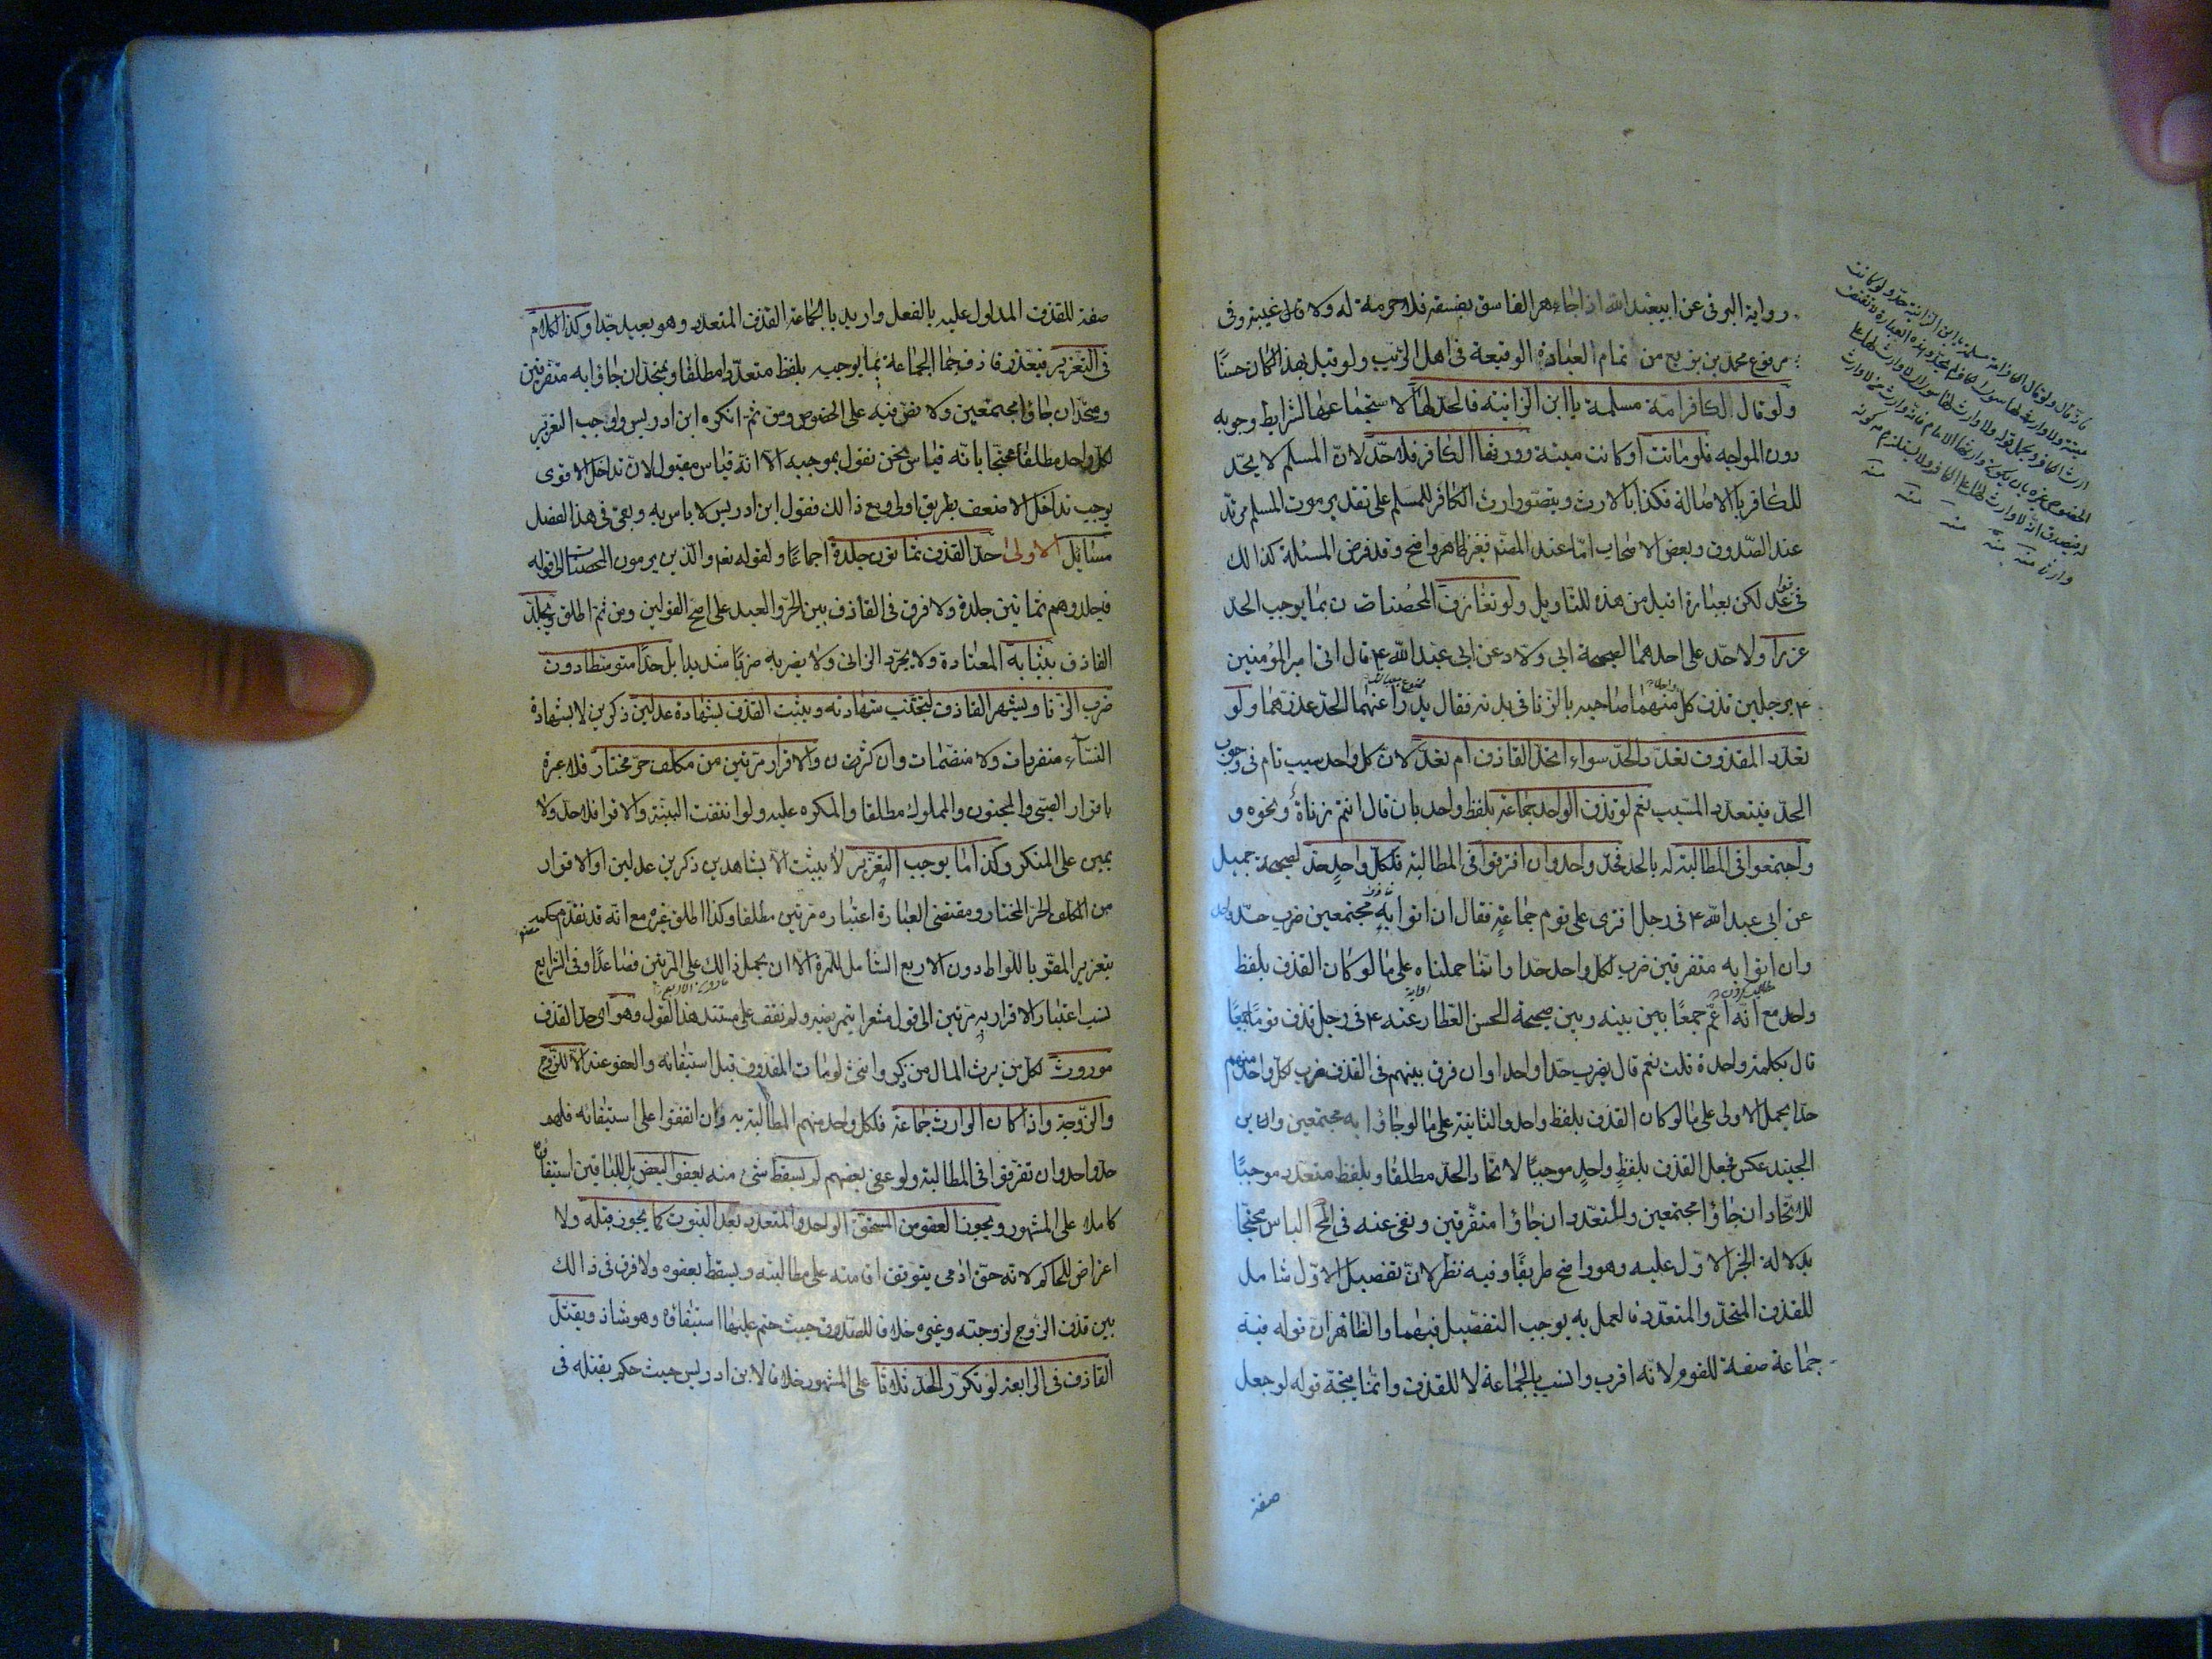 رواية البرقي عن ابيعبد الله اذا جاهر الفاسق بفسقه فلا حرمة له ولا غيبة وفي
مرفوع محمد بن بزيع من تمام العبادة الوقيعة في اهل الريب ولو قيل بهذا كان حسنًا
ولو قال الكافر امه مسلمة يا ابن الزانية فالحد لها لاستجماعها لشرايط وجوبه
دون المواجه فلو ماتت او كانت ميتة وورثها الكافر فلا حدّ لانّ المسلم لا يحدّ
للكافر بالاصالة فكذا بالارث ويتصور ارث الكافر للمسلم على تقدير موت المسلم مرتد
عند الصدوق وبعض الاصحاب امّا عند المصنّف فغير ظاهر واضح وقد فرض المسئلة كذالك
في عد لكن بعبارة اقبل من هذه للتاويل ولو تقاذف المحصنان بما يوجب الحد
عزرا ولا حدّ على احدهما لصحيحة ابي ولاد عن ابي عبد الله ع قال اتي امير المؤمنين
ع برجلين قذف كل واحد منهما صاحبه بالزنا في بدنه فقال يدرأ عنهما الحد عزرهما ولو
تعدد المقذوف تعدد الحدّ سواء اتحد القاذف ام تعدّد لان كل واحد سبب تام في وجوب
الحدّ فيتعدد المسبب نعم لو قذف الواحد جماعة بلفظ واحد بان قال انتم زناة ونحوه و
واجتمعوا في المطالبة له بالحد فحدّ واحد وان افترقوا في المطالبة فلكل واحدٍ حدّ لصحيحة جميل
عن ابي عبد الله ع في رجل افترى على قوم جماعةٍ فقال ان اتوا به مجتمعين ضرب حدّ واحد
وان اتوا به متفرقين ضرب لكل واحد حدّا وانّما حملناه على ما لو كان القذف بلفظ
واحد مع انّه اعمّ جمعًا بين بينه وبين صحيحة الحسن العطار عنه ع في رجل قذف قومًا جميعًا
قال بكلمة واحدة قلت نعم قال يضرب حدّا واحدا وان فرق بينهم في القذف ضرب لكل واحد منهم
حدّا بحمل الاولى على ما لو كان القذف بلفظ واحد والثانية على ما لو جاؤا به مجتمعين وابن
الجنيد عكس فجعل القذف بلفظٍ واحدٍ موجبًا لاتحاد الحدّ مطلقًا وبلفظ متعدد موجبًا
للاتحاد ان جاؤا مجتمعين وللتعدّد ان جاؤا متفرقين ونفى عنه في المخ الباس محتجّا
بدلالة الخبر الاوّل عليه وهو اوضح طريقًا وفيه نظر لانّ تفصيل الاوّل شامل
للقذف المتحد والمتعدّد فالعمل به يوجب التفصيل فيهما والظاهر ان قوله فيه
جماعة صفة للقوم لانه اقرب وانسب بالجماعة لا للقذف وانّما يتجه قوله لو جعل
صفة
صفة للقذف المدلول عليه بالفعل واريد بالجماعة القذف المتعدد وهو بعيد جدّا وكذا الكلام
في التعزير فيعزر قاذف جماعة بما يوجبه بلفظ متعدد مطلقًا وبمتحد ان جاؤا به متفرقين
ومتّحدا ان جاؤا مجتمعين ولا نصّ فيه على الخصوص ومن ثم انكره ابن ادريس واوجب التعزير
لكل واحد مطلقًا محتجًّا بانّه قياس ونحن نقول بموجبه الا انّه قياس مقبول لانّ تداخل الاقوى
يوجب تداخل الاضعف بطريق اولى ومع ذالك فقول ابن ادريس لا باس به وبقي في هذا الفصل
مسائل الاولى حدّ القذف ثمانون جلدة اجماعًا ولقوله تعم والّذين يرمون المحصنات الى قوله
فاجلدوهم ثمانين جلدة ولا فرق في القاذف بين الحرّ والعبد على اصحّ القولين ومن ثمّ اطلق ويجلد
القاذف بثيابه المعتادة ولا يجرّد الزاني ولا يضربه ضربًا شديدا بل حدّا متوسطا دون
ضرب الزنا ويشهر القاذف لتجتنب شهادته ويثبت القذف بشهادة عدلين ذكرين لا بشهادة
النساء منفردات ولا منضمات وان كثرن والاقرار مرتين من مكلف حرّ مختار فلا عبرة
باقرار الصبي والمجنون والمملوك مطلقا والمكره عليه ولو انتفت البينة والاقرار فلا حد ولا
يمين على المنكر وكذا ما يوجب التعزير لا يثبت الا بشاهدين ذكرين عدلين او الاقرار
من المكلف الحرّ المختار ومقتضى العبارة اعتباره مرتين مطلقا وكذا اطلق غيره مع انه قد تقدم حكمه
بتعزير المقرّ باللواط دون الاربع الشامل للمرة الا ان يحمل ذالك على المرتين فصاعدًا وفي الشرايع
نسب اعتبار الاقرار به مرتين الى قول مشعرا بتمريضه ولم نقف على مستند هذا القول وهو اى حدّ القذف
موروث لكل من يرث المال من ذكر وانثى لو مات المقذوف قبل استيفائه والعفو عنه الاّ للزوج
والزّوجة واذا كان الوارث جماعة فلكل واحد منهم المطالبة به وان اتفقوا على استيفائه فلهم
حدّ واحد وان تفرّقوا في المطالبة ولو عفى بعضهم لم يسقط شئ منه بعفو البعض بل للباقين استيفاؤه
كاملا على المشهور ويجوز العفو من المستحقّ الواحد والمتعدد بعد الثبوت كما يجوز قبله ولا
اعتراض للحاكم لانه حقّ ادمي يتوقف اقامته على مطالبته ويسقط بعفوه ولا فرق في ذالك
بين قذف الزوج لزوجته وغيره خلافا للصدوق حيث حتم عليها استيفاؤه وهو شاذ ويقتل
القاذف في الرابعة لو تكرّر الحدّ ثلاثًا على المشهور خلافا لابن ادريس حيث حكم بقتله في